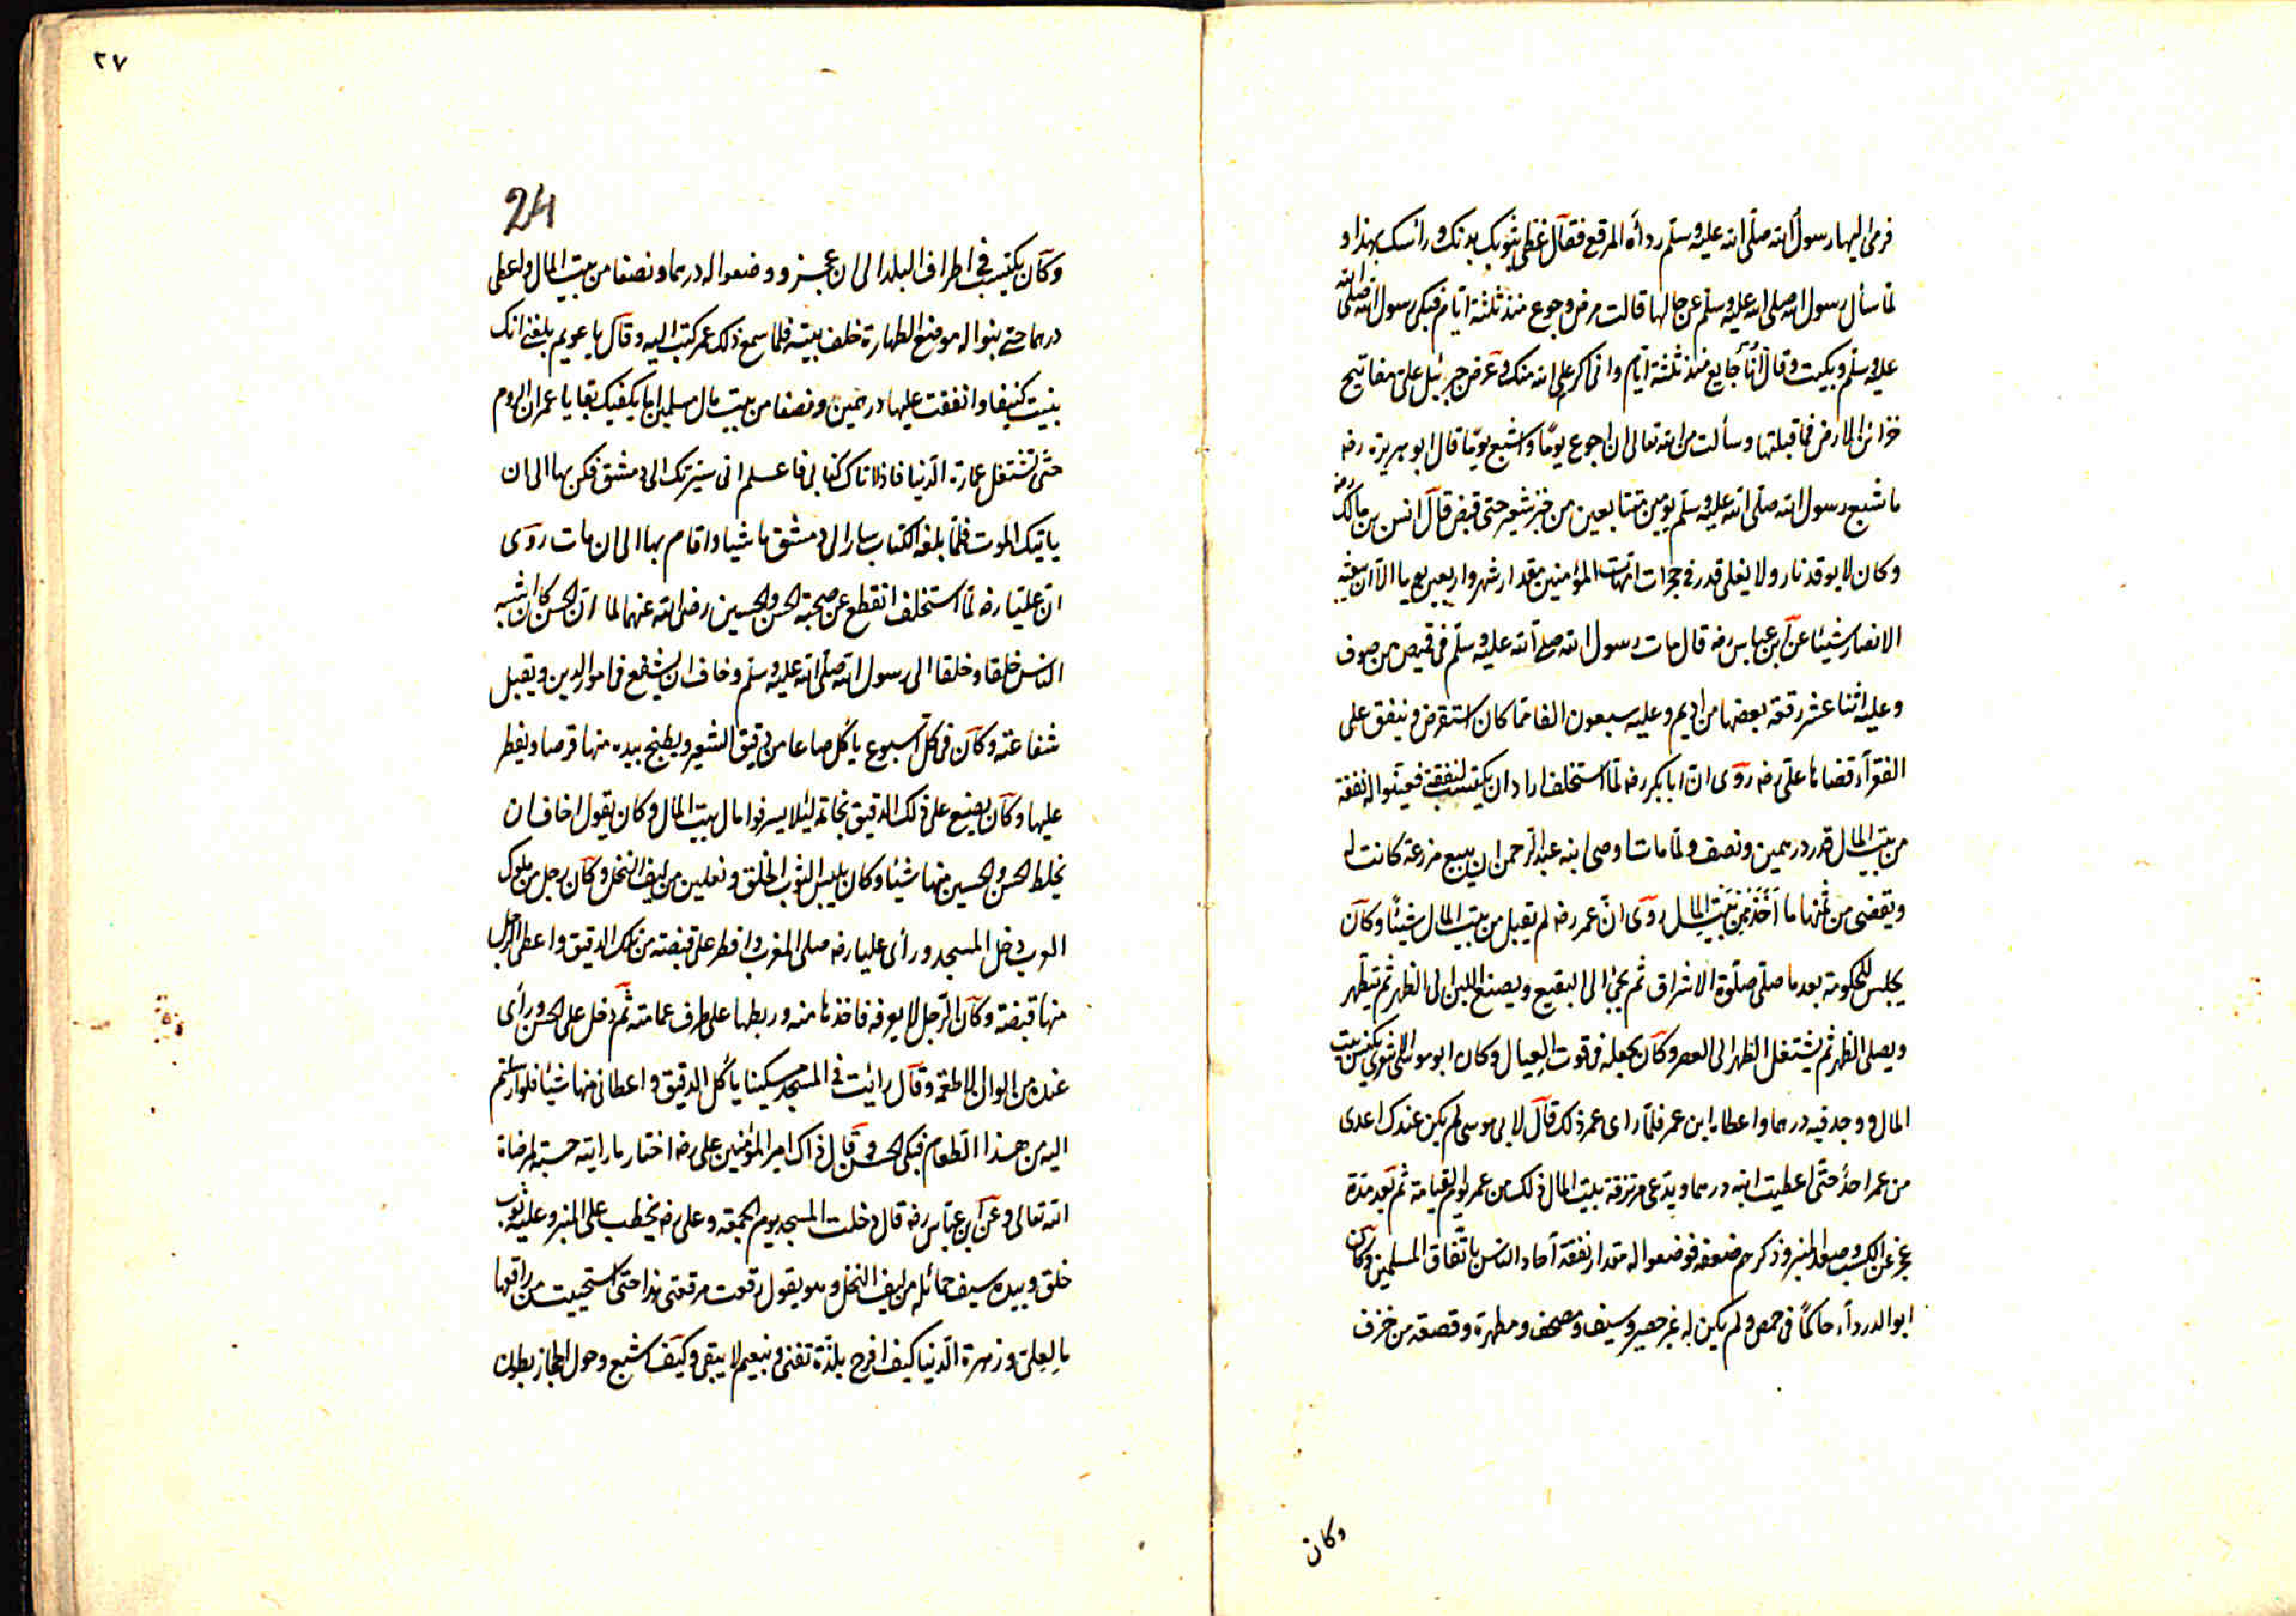 فرمى اليها رسول الله صلّى الله عليه وسلّم رداءه المرقع فقال غطى بثوبك بدنك ورأسك بهذا و
لمّا سأل رسول الله صلى الله عليه وسلّم عن حالها قالت مرض وجوع منذ ثلثة ايّام فبكى رسول الله صلى الله
عليه وسلّم وبكيت وقال انا جايع منذ ثلثة ايّام وانى اكرم على الله منك وعرض جبرئيل على مفاتيح
خزائن الارض فما قبلتها وسألت من الله تعالى ان اجوع يومًا واشبع يومًا قال ابو هريرة رضه
ما شبع رسول الله صلّى الله عليه وسلّم يومين متتابعين من خبز شعير حتى قبض قال انس بن مالك رضه
وكان لا يوقد نار ولا يغلى قدر فى حجرات امّهات المؤمنين مقدار شهر واربعين يوما الا ان يبعثه
الانصار شيئا عن ابن عباس رضه قال مات رسول الله صلى الله عليه وسلّم فى قميص من صوف
وعليه اثنا عشر رقعة بعضها من اديم وعليه سبعون الفا ممّا كان استقرض وينفق على
الفقراء قضاها على رضه روى انّ ابا بكر رضه لمّا استخلف اراد ان يكتسب لنفقته فعيّنوا له نفقة
من بيت المال قدر درهمين ونصف ولمّا مات اوصى ابنه عبد الرّحمن ان يبيع مزرعة كانت له
ويقضى من ثمنها ما اخذ من بيت المال روى انّ عمر رضه لم يقبل من بيت المال شيئًا وكان
يجلس للحكومة بعد ما صلّى صلوة الاشراق ثم يجئ الى البقيع ويصنع اللبن الى الظهر ثم يتطهر
ويصلى الظهر ثم يشتغل الظهر الى العصر وكان يجعله فى قوت العيال وكان ابو موسى الاشعرى يكنس بيت
المال ووجد فيه درهما واعطاه ابن عمر فلمّا راى عمر ذلك قال لابى موسى لم يكن عندك اعدى
من عمر احدًا حتّى اعطيت ابنه درهما ويدعى مرتزقة بيت المال ذلك من عمر يوم القيامة ثم بعد مدة
عجز عن الكسب وصعد المنبر وذكرهم ضعفه فوضعوا له مقدار نفقة آحاد الناس باتّفاق المسلمين وكان
ابو الدرداء حاكمًا فى حمص ولم يكن له غير حصير وسيف ومصحف ومطهرة وقصعة من خزف
وكان
٢٧
24
وكان يكتسب فى اطراف البلد الى ان عجز ووضعوا له درهما ونصفا من بيت المال واعطى
درهما حتى بنوا له موضع الطهارة خلف بيته فلما سمع ذلك عمر كتب اليه وقال يا عويم بلغنى انك
بنيت كنيفا وانفقت عليها درهمين ونصفا من بيت مال مسلمين اما يكفيك بقايا عمران الروم
حتّى تشتغل عمارة الدّنيا فاذا اتاك كتابى فاعلم انى سيّرتك الى دمشق فكن بها الى ان
ياتيك الموت فلمّا بلغه الكتاب سار الى دمشق ماشيا واقام بها الى ان مات روى
انّ عليّا رضه لمّا استخلف انقطع عن صحبة الحسن والحسين رضى الله عنهما لما انّ الحسن كان اشبه
الناس خلقا وخلقا الى رسول الله صلّى الله عليه وسلّم وخاف ان يشفع فى امور الدين ويقبل
شفاعته وكان فى كل اسبوع ياكل صاعا من دقيق الشعير ويطبخ بيده منها قرصا ويفطر
عليها وكان يضع على ذلك الدقيق نجاته ليئلا يسرفوا مال بيت المال وكان يقول اخاف ان
يخلط الحسن والحسين منها شيئا وكان يلبس الثوب الخلق ونعلين من ليف النخل وكان رجل من ملوك
العرب دخل المسجد ورأى عليا رضه صلى المغرب وافطر على قبضته من تلك الدقيق واعطى الرجل
منها قبضته وكان الرّجل لا يعرفه فاخذها منه وربطها على طرف عمامته ثم دخل على الحسن ورأى
عنده من الوان الاطعمة وقال رائيت فى المسجد مسكينا يأكل الدقيق واعطانى منها شيئا فلو ارسلتم
اليه من هذا الطعام فبكى الحسن وقال ذاك امير المؤمنين على رضه اختار ما رايته حسبة لمرضاة
الله تعالى وعن ابن عبّاس رضه قال دخلت المسجد يوم الجمعة وعلى رضه يخطب على المنبر وعليه ثوب
خلق وبيده سيف حمائله من ليف النخل وهو يقول رقعت مرقعتى هذا حتى استحييت من راقعها
ما لعلى وزهرة الدّنيا كيف افرح بلذة تفنى ونعيم لا يبقى وكيف اشبع وحول الحجاز بطون